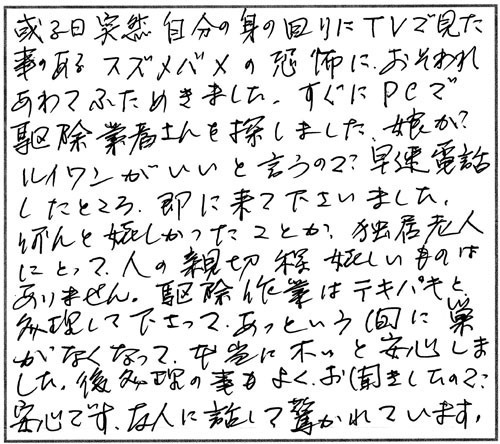 或る日突然自分の身の回りにTVで見た
事のあるスズメバメの恐怖に、おそわれ
あわてふためきました。すぐにPCで
駆除業者さんを探しました、娘が?
ルイワンがいいと言うので?早速電話
したところ、即に来て下さいました。
何んと嬉しかったことか、独居老人
にとって、人の親切程嬉しいものは
ありません。駆除作業はテキパキと、
処理して下さって、あっという間に巣
がなくなって、本当にホッと安心しま
した。後処理の事もよく、お聞きしたので、
安心です、友人に話して驚かれています。